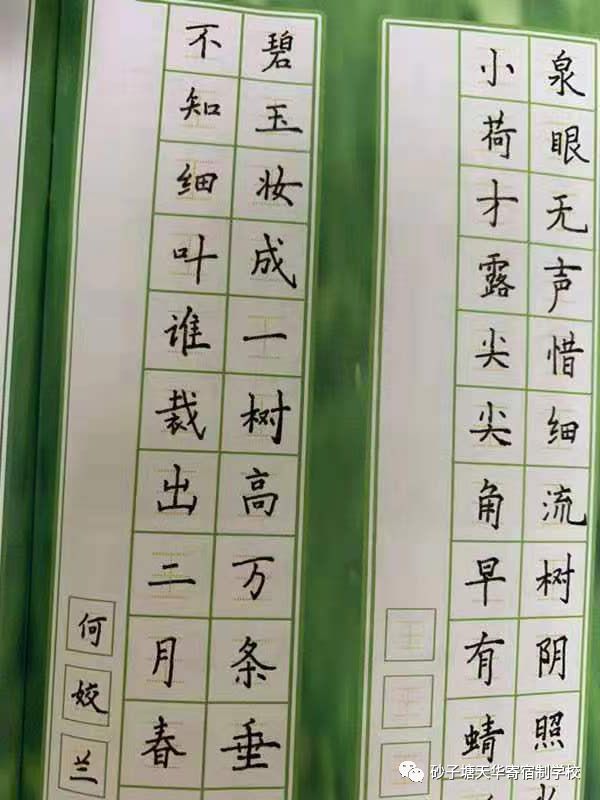 泉眼无声惜细流树阴照
小荷才露尖尖角早有蜻
碧玉妆成一树高万条垂
不知细叶谁裁出二月春
何姣兰
砂子塘天华寄宿制学校